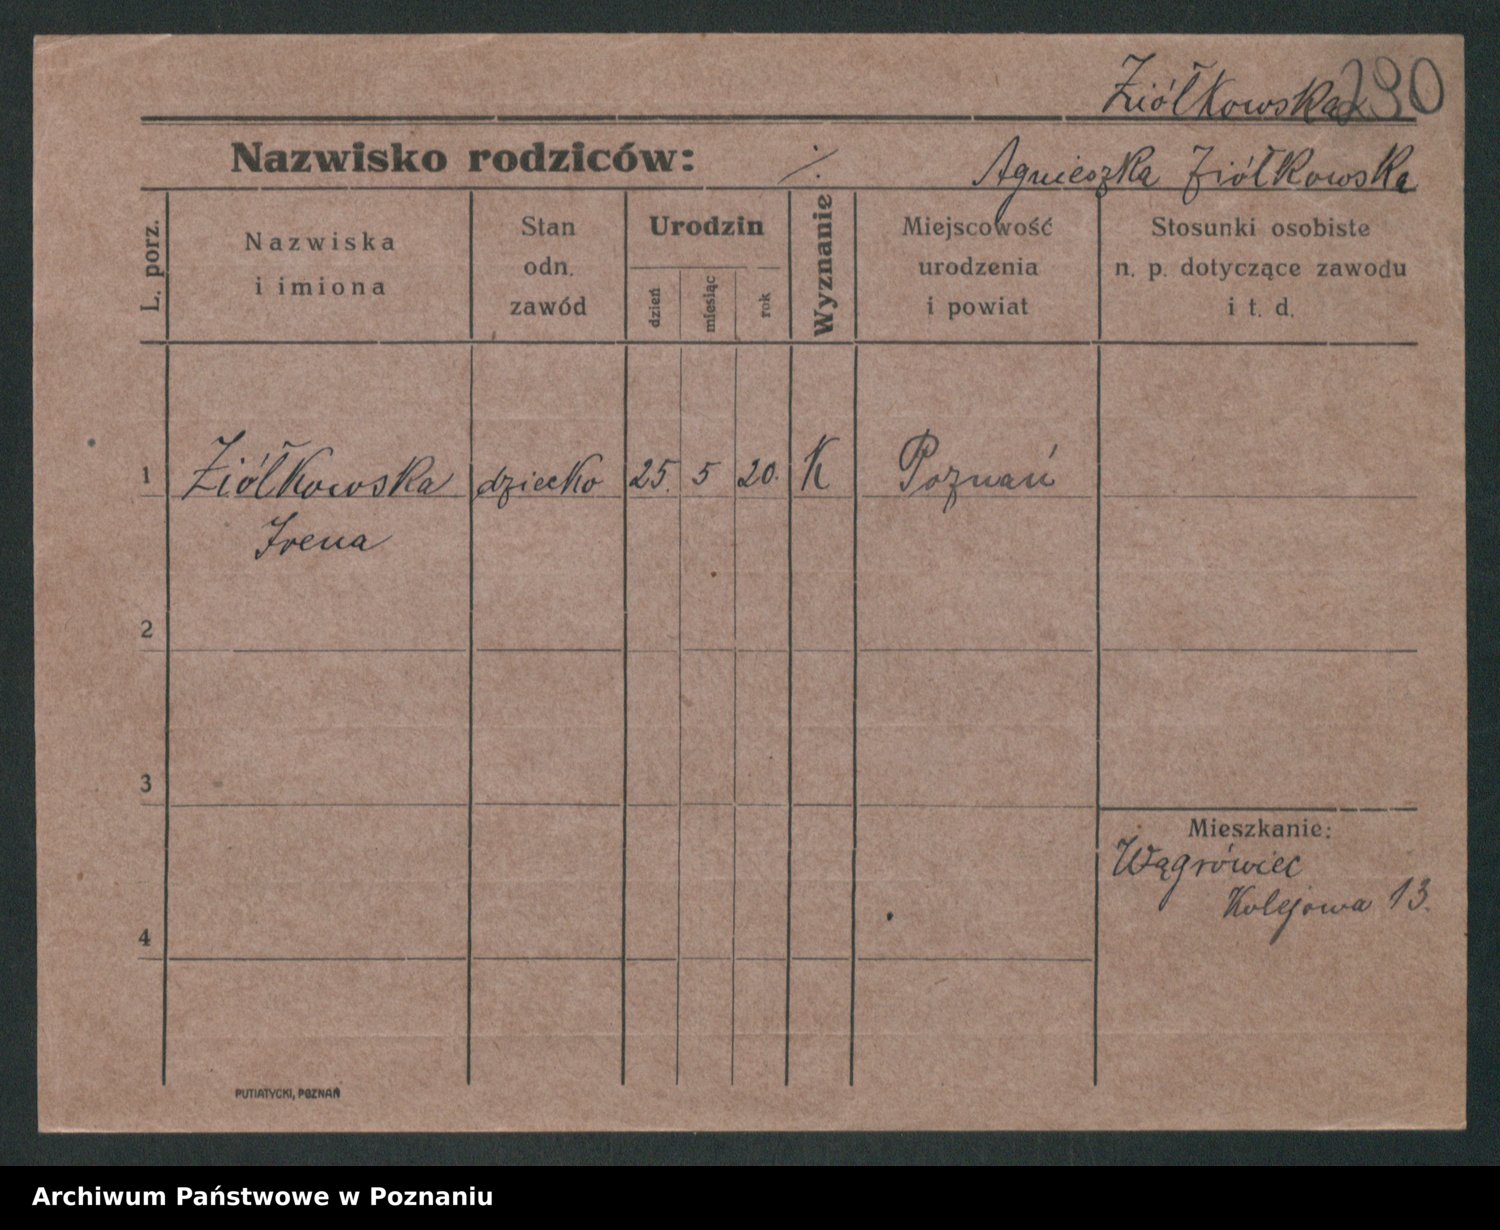 Ziółkowska 290
Nazwisko rodziców: ·/. Agnieszka Ziółkowska
L. porz.
Nazwiska i imiona
Stan odn. zawód
Urodzin
dzień
miesiąc
rok
Wyznanie
Miejscowość urodzenia i powiat
Stosunki osobiste n. p. dotyczące zawodu i t. d.
1 Ziółkowska dziecko 25. 5 20. K Poznań
Irena
2
3
Mieszkanie:
Wągrówiec
Kolejowa 13.
4
PUTIATYCKI, POZNAŃ
Archiwum Państwowe w Poznaniu